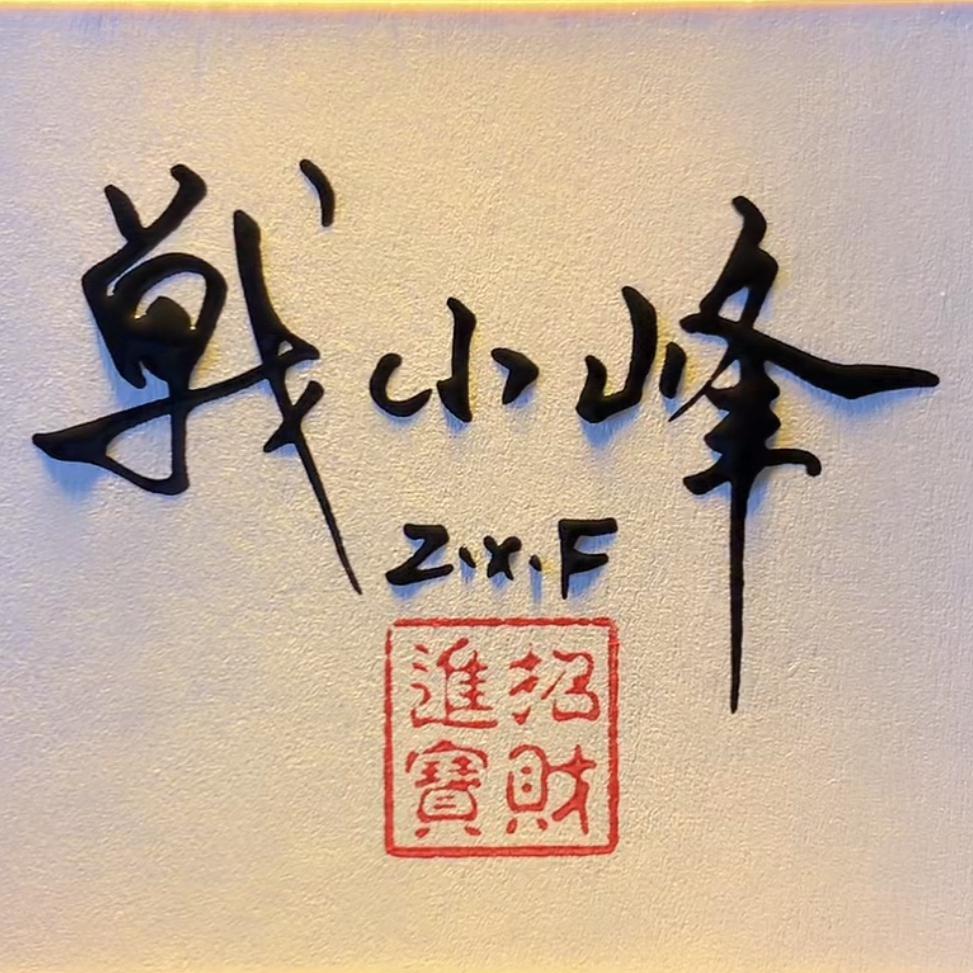 戦小峰
Z.X.F
招財
進寶